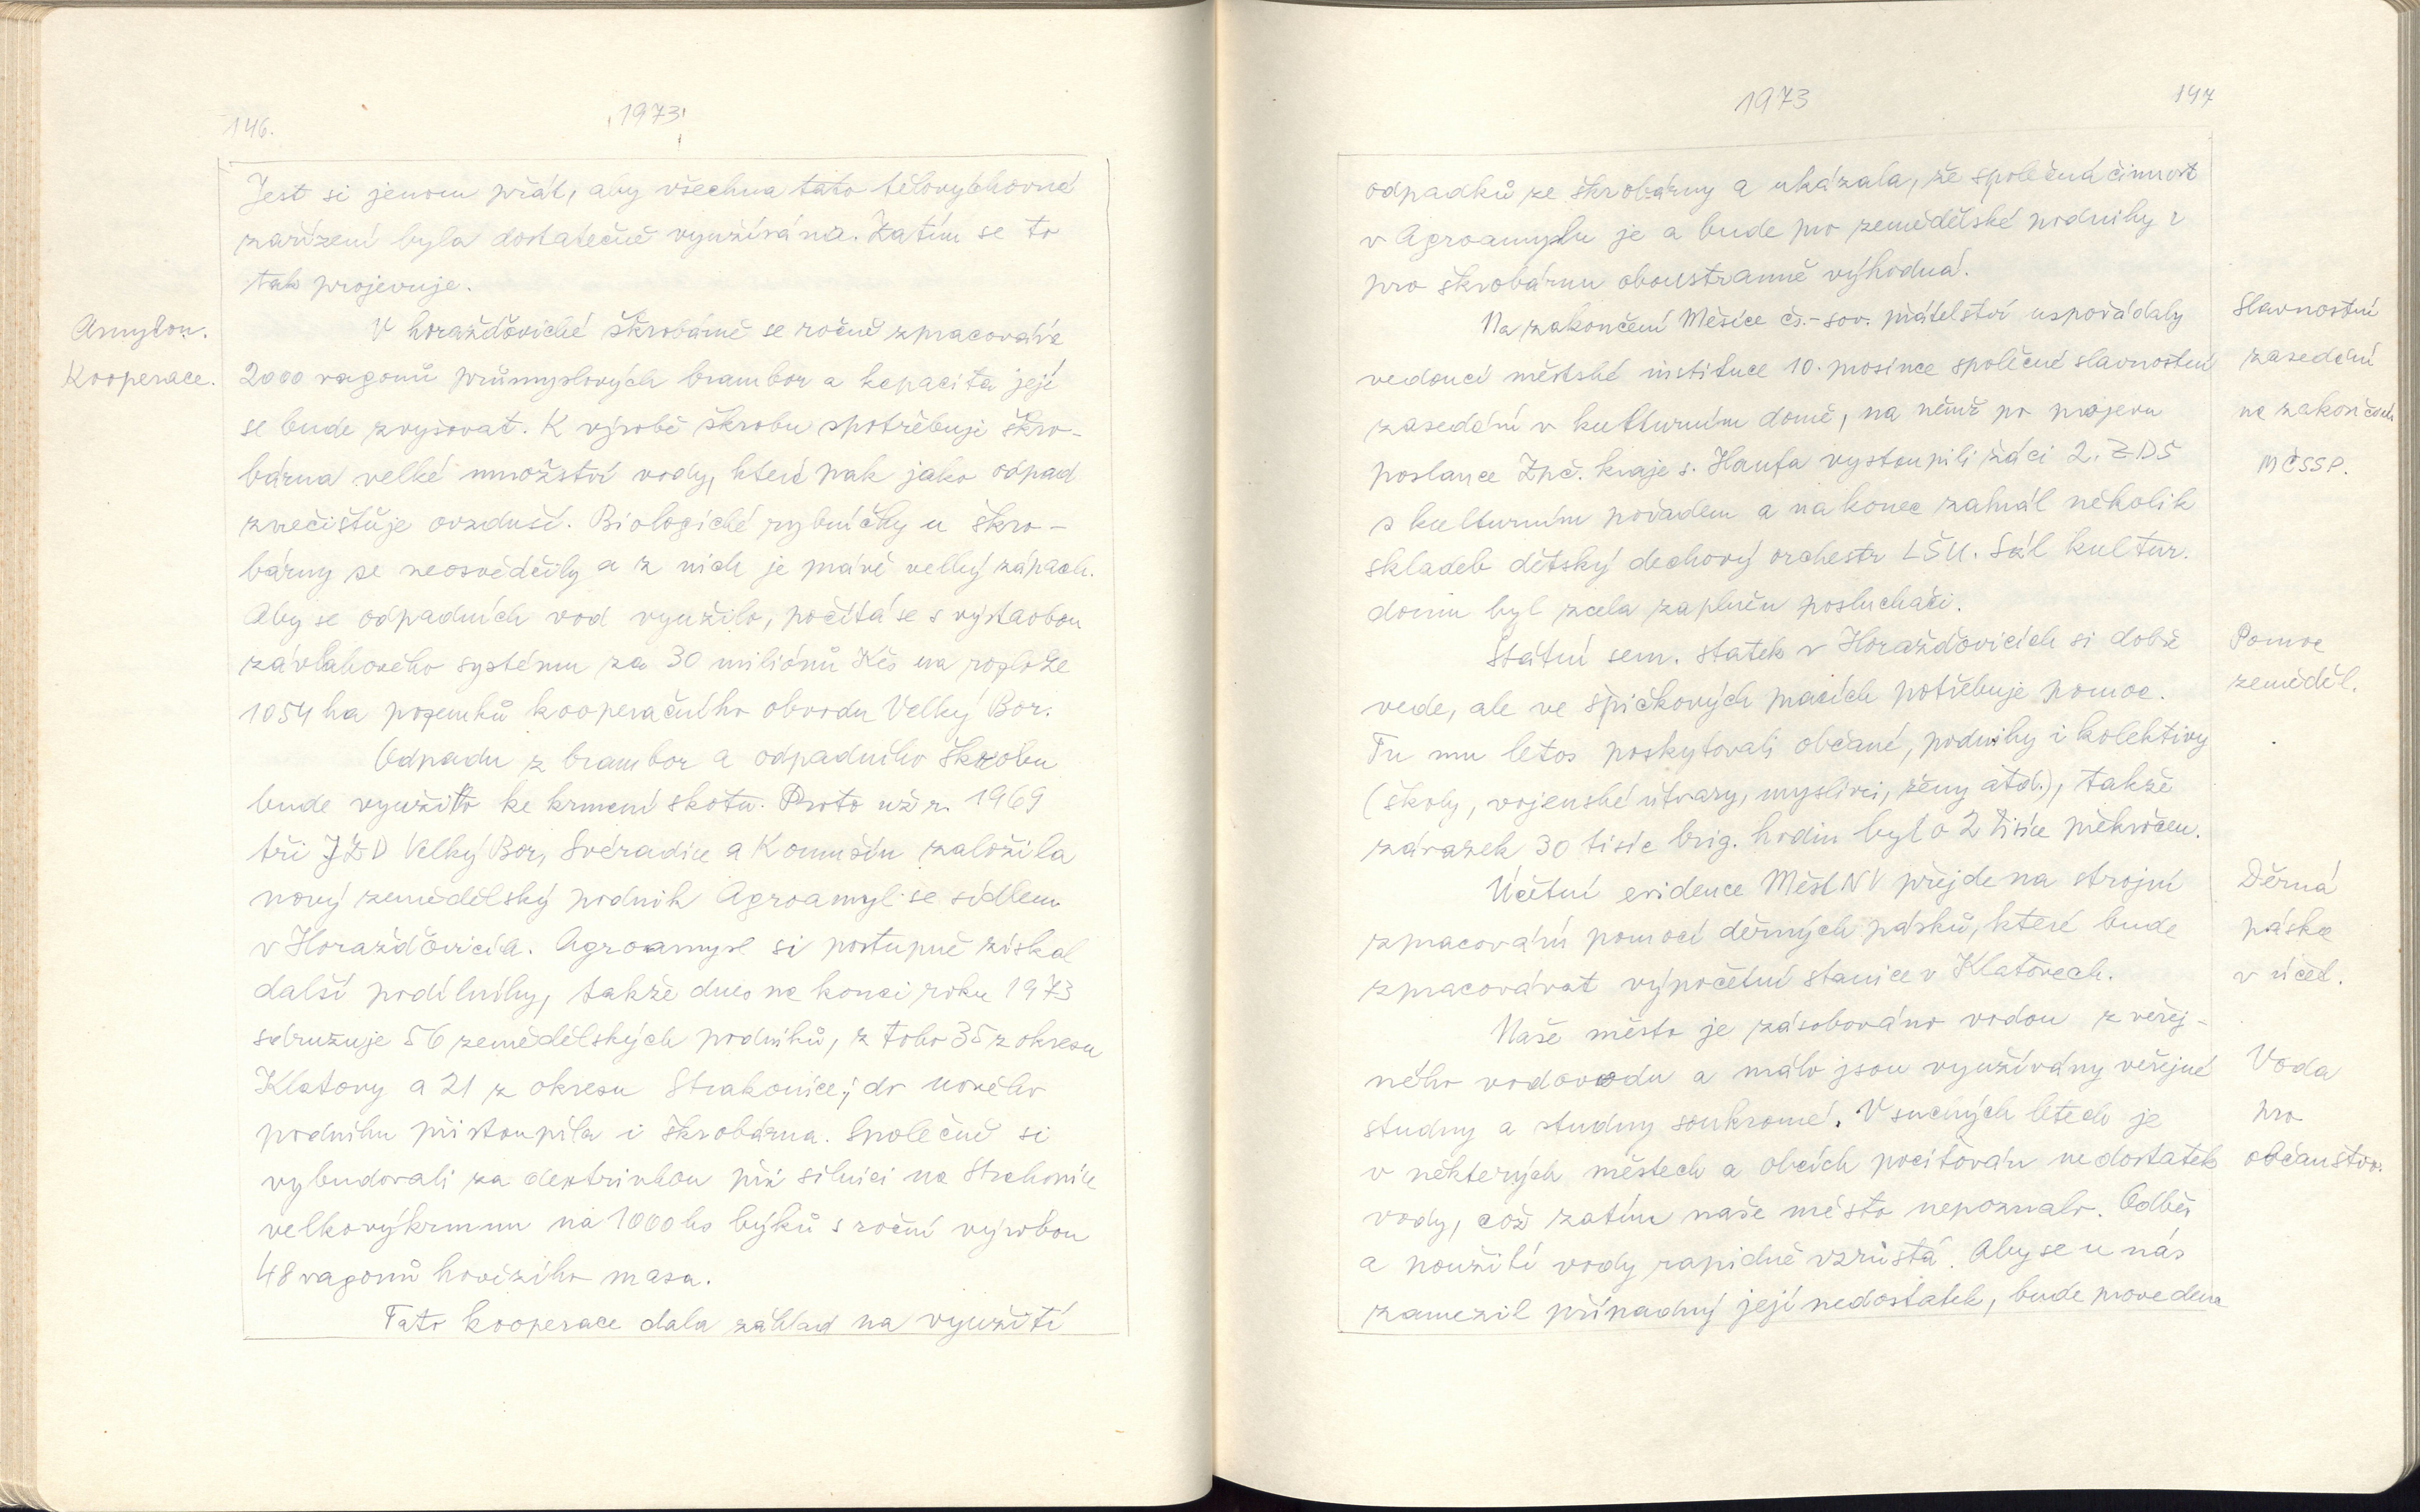 146.
1973
Jest si jenom přát, aby všechna tato tělovýchovné
zařízení byla dostatečně využívána. Zatím se to
tak projevuje.
Amylon.
Kooperace.
V horažďovické škrobárně se ročně zpracovává
2000 vagonů průmyslových brambor a kapacita její
se bude zvyšovat. K výrobě škrobu spotřebuje škro-
bárna velké množství vody, které pak jako odpad
znečišťuje ovzduší. Biologické rybníčky u škro-
bárny se neosvědčily a z nich je právě velký zápach.
Aby se odpadních vod využilo, počítá se s výstavbou
závlahového systému za 30 miliónů Kčs na rozloze
1054 ha pozemků kooperačního obvodu Velký Bor.
Odpadu z brambor a odpadního škrobu
bude využito ke krmení skotu. Proto už r. 1969
tři JZD Velký Bor, Svéradice a Komušín založila
nový zemědělský podnik Agroamyl se sídlem
v Horažďovicích. Agroamyl si postupně získal
další podílníky, takže dnes na konci roku 1973
sdružuje 56 zemědělských podniků, z toho 35 z okresu
Klatovy a 21 z okresu Strakonice; do nového
podniku přistoupila i škrobárna. Společně si
vybudovali za dextrinkou při silnici na Strakonice
velkovýkrmnu na 1000 ks býků s roční výrobou
48 vagonů hovězího masa.
Tato kooperace dala základ na využití
1973
147
odpadků ze škrobárny a ukázala, že společná činnost
v Agroamylu je a bude pro zemědělské podniky i
pro škrobárnu oboustranně výhodná.
Na zakončení Měsíce čs.-sov. přátelství uspořádaly
vedoucí městské instituce 10. prosince společné slavnostní
zasedání v kulturním domě, na němž po projevu
poslance Zpč. kraje s. Haufa vystoupili žáci 2. ZDŠ
s kulturním pořadem a na konec zahrál několik
skladeb dětský dechový orchestr LŠU. Sál kultur.
domu byl zcela zaplněn posluchači.
Slavnostní
zasedání
na zakončení
MČSSP.
Státní sem. statek v Horažďovicích si dobře
vede, ale ve špičkových pracích potřebuje pomoc.
Tu mu letos poskytovali občané, podniky i kolektivy
(školy, vojenské útvary, myslivci, ženy atd.), takže
závazek 30 tisíc brig. hodin byl o 2 tisíce překročen.
Pomoc
zeměděl.
Účetní evidence MěstNV přejde na strojní
zpracování pomocí děrných pásků, které bude
zpracovávat výpočetní stanice v Klatovech.
Děrná
páska
v účet.
Naše město je zásobováno vodou z veřej-
ného vodovodu a málo jsou využívány veřejné
studny a studny soukromé. V suchých letech je
v některých městech a obcích pociťován nedostatek
vody, což zatím naše město nepoznalo. Odběr
a použití vody rapidně vzrůstá. Aby se u nás
zamezil případný její nedostatek, bude provedena
Voda
pro
občanstvo.